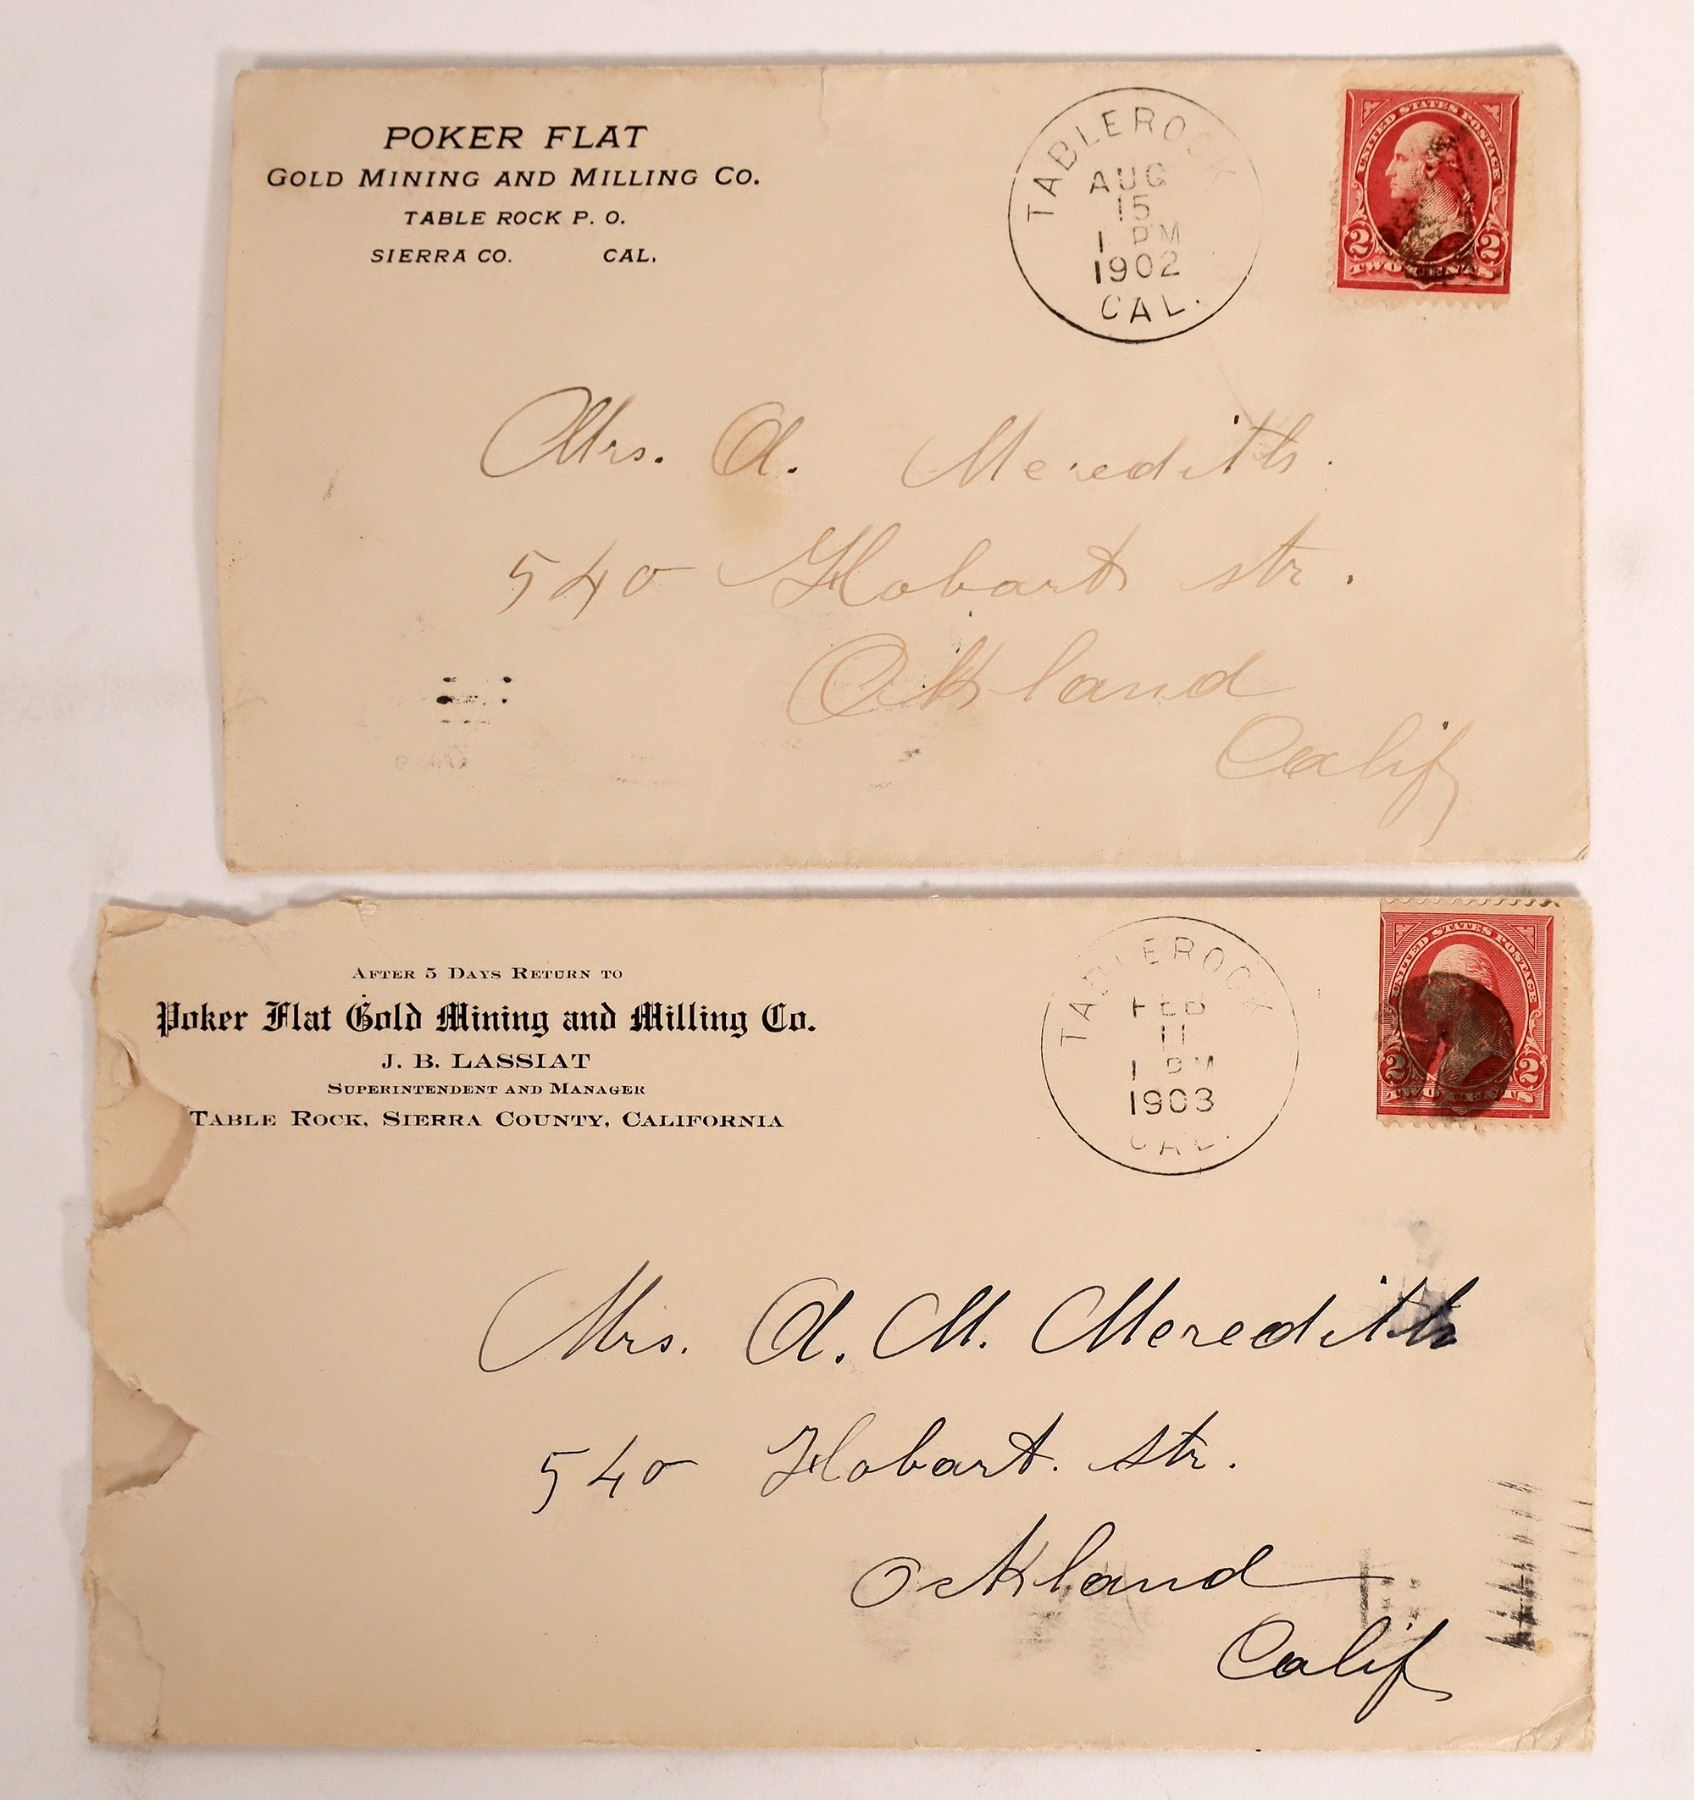 POKER FLAT
GOLD MINING AND MILLING CO.
TABLE ROCK P. O.
SIERRA CO. CAL.
TABLEROCK
AUG
15
1 PM
1902
CAL.
UNITED STATES POSTAGE
2 2
TWO CENTS
Mrs. A. Meredith.
540 Hobart str.
Oakland
Calif
AFTER 5 DAYS RETURN TO
Poker Flat Gold Mining and Milling Co.
J. B. LASSIAT
SUPERINTENDENT AND MANAGER
TABLE ROCK, SIERRA COUNTY, CALIFORNIA
TABLEROCK
FEB
11
1 PM
1903
CAL.
UNITED STATES POSTAGE
2 2
TWO CENTS
Mrs. A. M. Meredith
540 Hobart. str.
Oakland
Calif